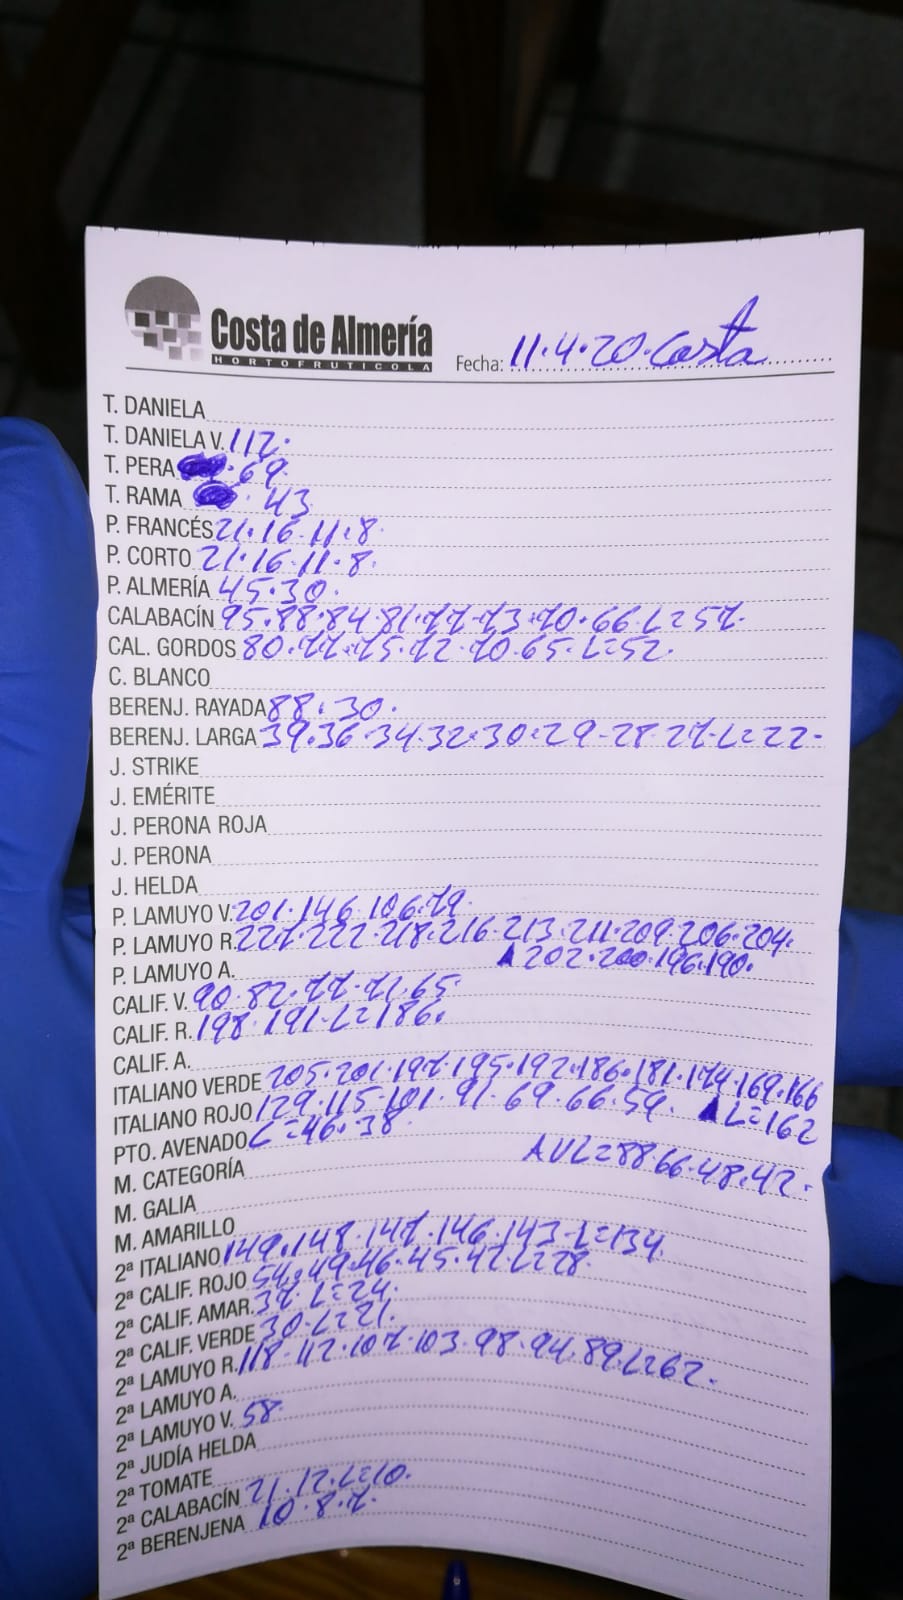 Costa de Almería
HORTOFRUTICOLA
Fecha: 11.4.20. Costa
T. DANIELA
T. DANIELA V. 112.
T. PERA 69.
T. RAMA 43
P. FRANCÉS 21.16.11.8.
P. CORTO 21.16.11.8.
P. ALMERÍA 45.30.
CALABACÍN 95.88.84.81.77.73.70.66.L=57.
CAL. GORDOS 80.77.75.72.70.65.L=52.
C. BLANCO
BERENJ. RAYADA 88.30.
BERENJ. LARGA 39.36.34.32.30.29-28-27-L=22-
J. STRIKE
J. EMÉRITE
J. PERONA ROJA
J. PERONA
J. HELDA
P. LAMUYO V. 201.146.106.79.
P. LAMUYO R. 227.222-218.216-213.211.209.206.204.
P. LAMUYO A. 202.200.196.190.
CALIF. V. 90.82.77-71.65.
CALIF. R. 198.191-L=186.
CALIF. A.
ITALIANO VERDE 205.201.197.195.192.186.181.174.169.166
ITALIANO ROJO 129.115-101.91.69.66.59. L=162
PTO. AVENADO L=46.38.
M. CATEGORÍA AVL=88 66.48.42.
M. GALIA
M. AMARILLO
2ª ITALIANO 149.148.147.146.143-L=134.
2ª CALIF. ROJO 54.49.46.45.42.L=28.
2ª CALIF. AMAR. 37.L=24.
2ª CALIF. VERDE 30-L=21.
2ª LAMUYO R. 118-112.107.103.98.94.89.L=62.
2ª LAMUYO A.
2ª LAMUYO V. 58.
2ª JUDÍA HELDA
2ª TOMATE
2ª CALABACÍN 21.12.L=10.
2ª BERENJENA 10.8.7.